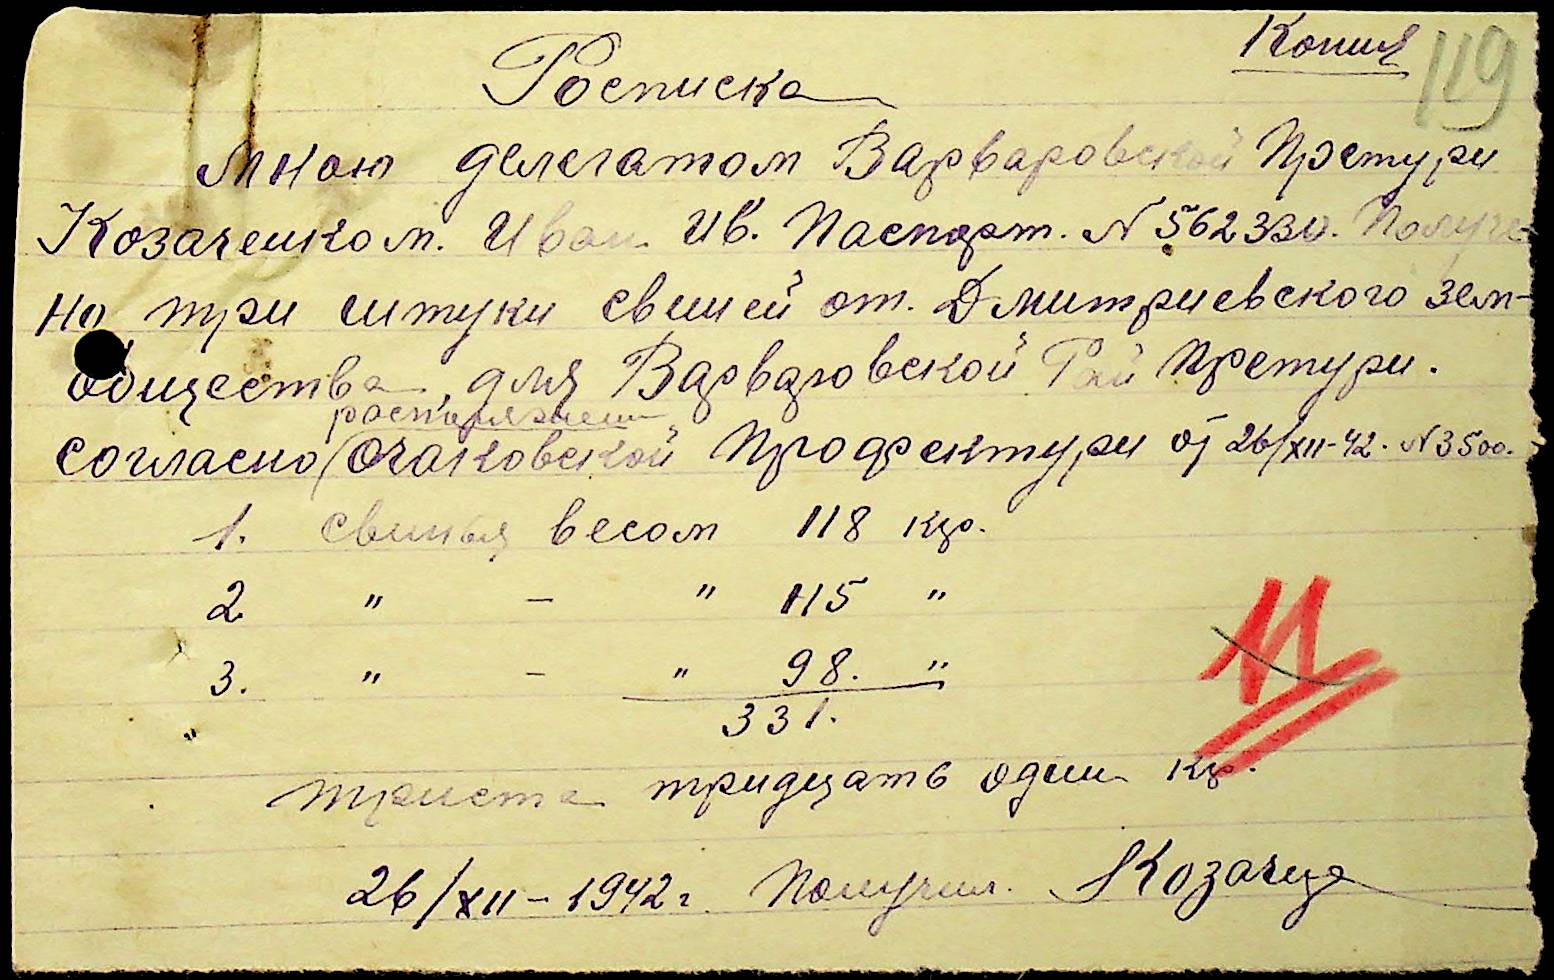 Копия
119
Росписка
Мною делегатом Варваровской Претури
Козаченком. Иван Ив. Паспорт. N 562330. Получе-
но три штуки свиней от. Дмитриевского зем-
общества, для Варваровской Рай Претури.
распоряжени
согласно Очаковской Профектури от 26/XII-42. N 3500.
1. свинья весом 118 кгр.
2 " - " 115 "
3. " - " 98. "
331.
триста тридцать один кгр.
26/XII-1942 г. Получил.